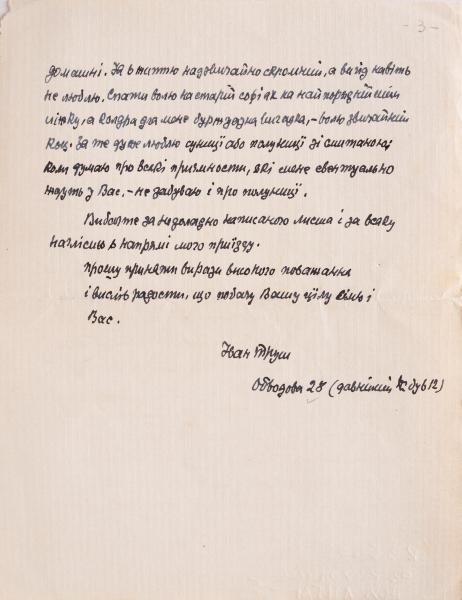 - 3 -
домашні. Я в життю надзвичайно скромний, а вигід навіть
не люблю. Спати волю на старій софі як на найпоряднійшім
ліжку, а колдра для мене буржуазна вигадка, - волю звичайний
коц. За те дуже люблю суниці або полуниці зі сметаною;
коли думаю про всякі приємности, які мене евентуально
ждуть у Вас, - не забуваю і про полуниці.
Вибачте за недоладно написаного листа і за всяку
в напрямі мого приїзду.
Прошу приняти вирази високого поважання
і вислів радости, що побачу Вашу цілу сімю і
Вас.
Іван Труш
Обводова 28 (давнійший був 12)